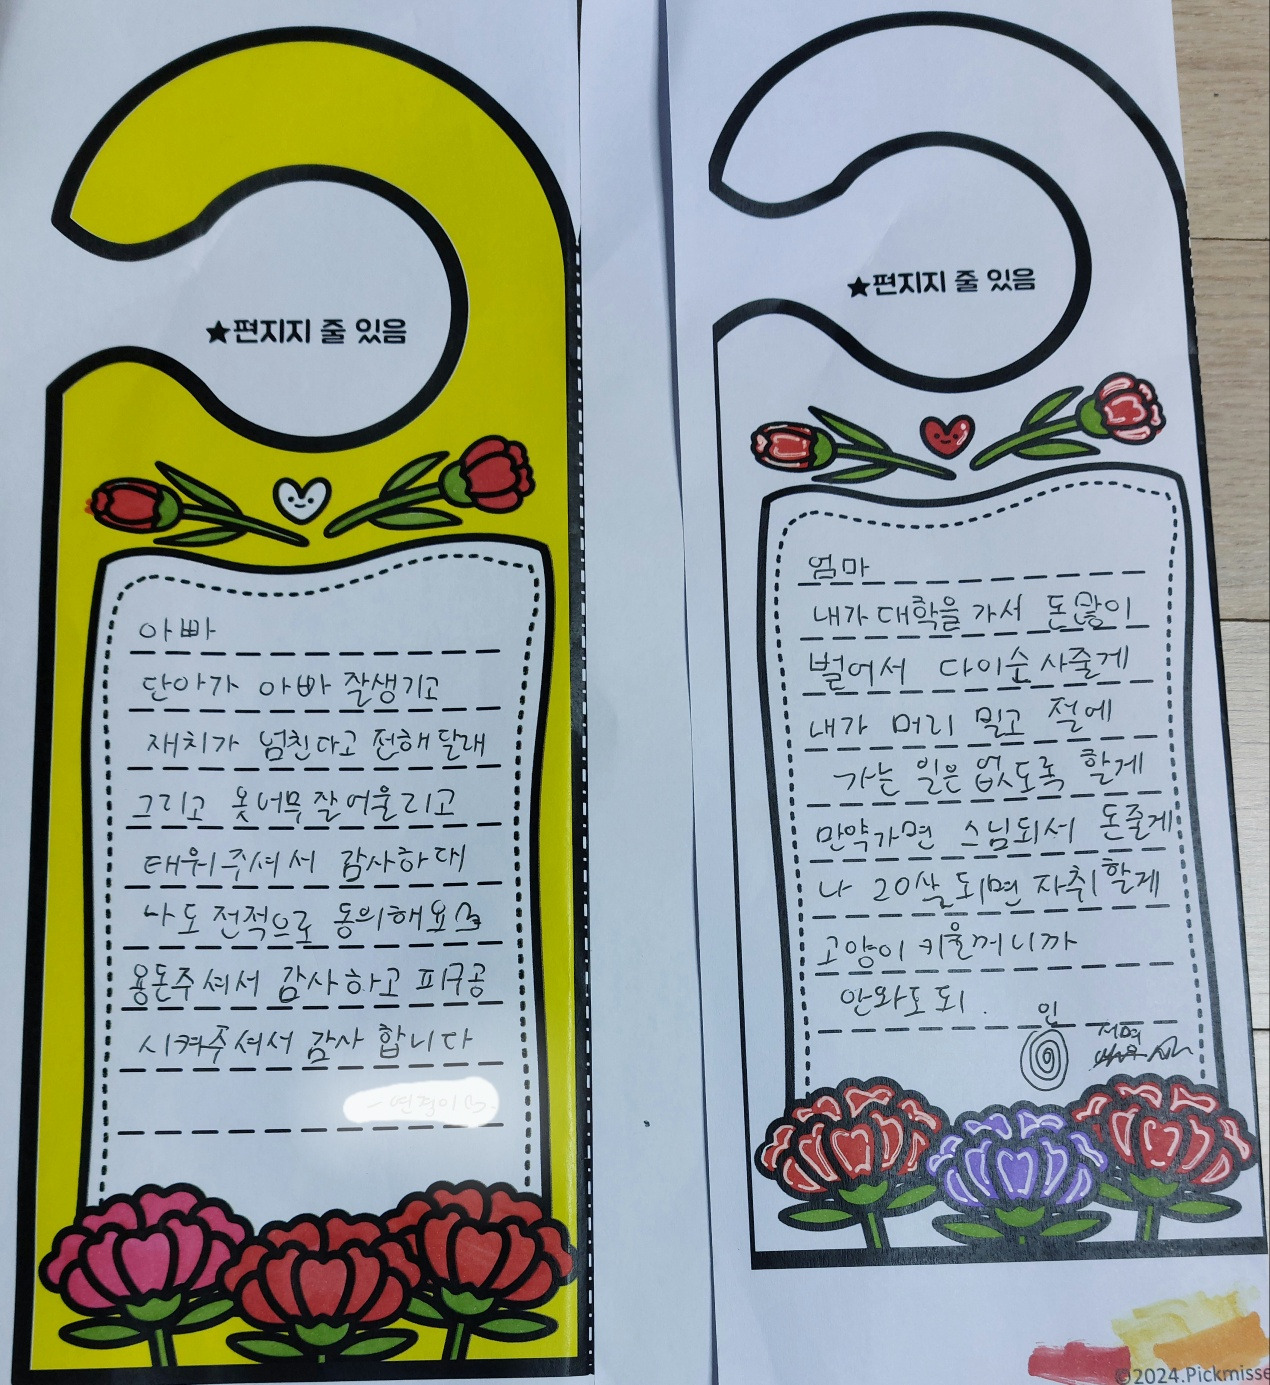 ★편지지 줄 있음
아빠
단아가 아빠 잘생기고
재치가 넘친다고 전해달래
그리고 옷너무잘어울리고
태워주셔서 감사하대
나도 전적으로 동의해요
용돈주셔서 감사하고 피구공
시켜주셔서 감사 합니다
★편지지 줄 있음
엄마
내가 대학을 가서 돈많이
벌어서 다이슨 사줄게
내가 머리 밀고 절에
가는 일은 없도록 할게
만약가면 스님되서 돈줄게
나 20살 되면 자취할게
고양이 키울꺼니까
안와도 되.
인
서명
©2024.Pickmisse